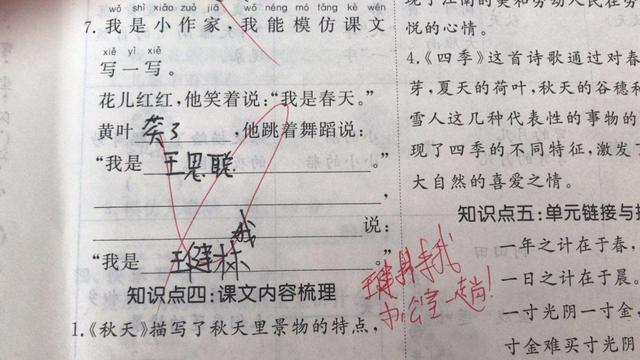 wǒ shì xiǎo zuò jiā wǒ néng mó fǎng kè wén
7. 我是小作家，我能模仿课文
xiě yì xiě
写一写。
花儿红红，他笑着说：“我是春天。”
黄叶黄了，他跳着舞蹈说：
“我是王思聪。”
说：
我
“我是王建林。”
知识点四：课文内容梳理
1.《秋天》描写了秋天里景物的特点，
悦的心情。
4.《四季》这首诗歌通过对春
芽，夏天的荷叶，秋天的谷穗和
雪人这几种代表性的事物的
现了四季的不同特征，激发了
大自然的喜爱之情。
知识点五：单元链接与
一年之计在于春，
一日之计在于晨。
一寸光阴一寸金，
寸金难买寸光阴
来我
办公室一趟！